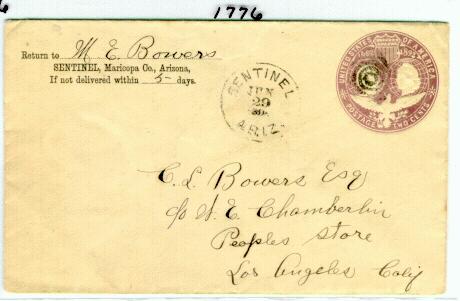 1776
Return to M. E. Bowers
SENTINEL, Maricopa Co., Arizona,
If not delivered within 5 days.
SENTINEL
JUN
29
ARIZ.
UNITED STATES OF AMERICA
POSTAGE TWO CENTS
C. L. Bowers Esq
c/o W. E. Chamberlin
Peoples Store
Los Angeles Calif